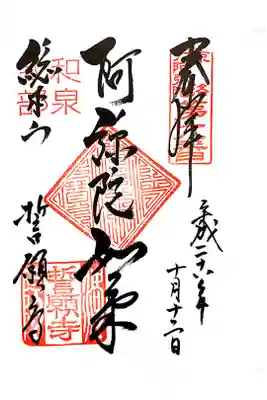 奉拝
平成二十六年
十月十二日
阿弥陀如来
和泉式部
総本山
誓願寺
誓願寺